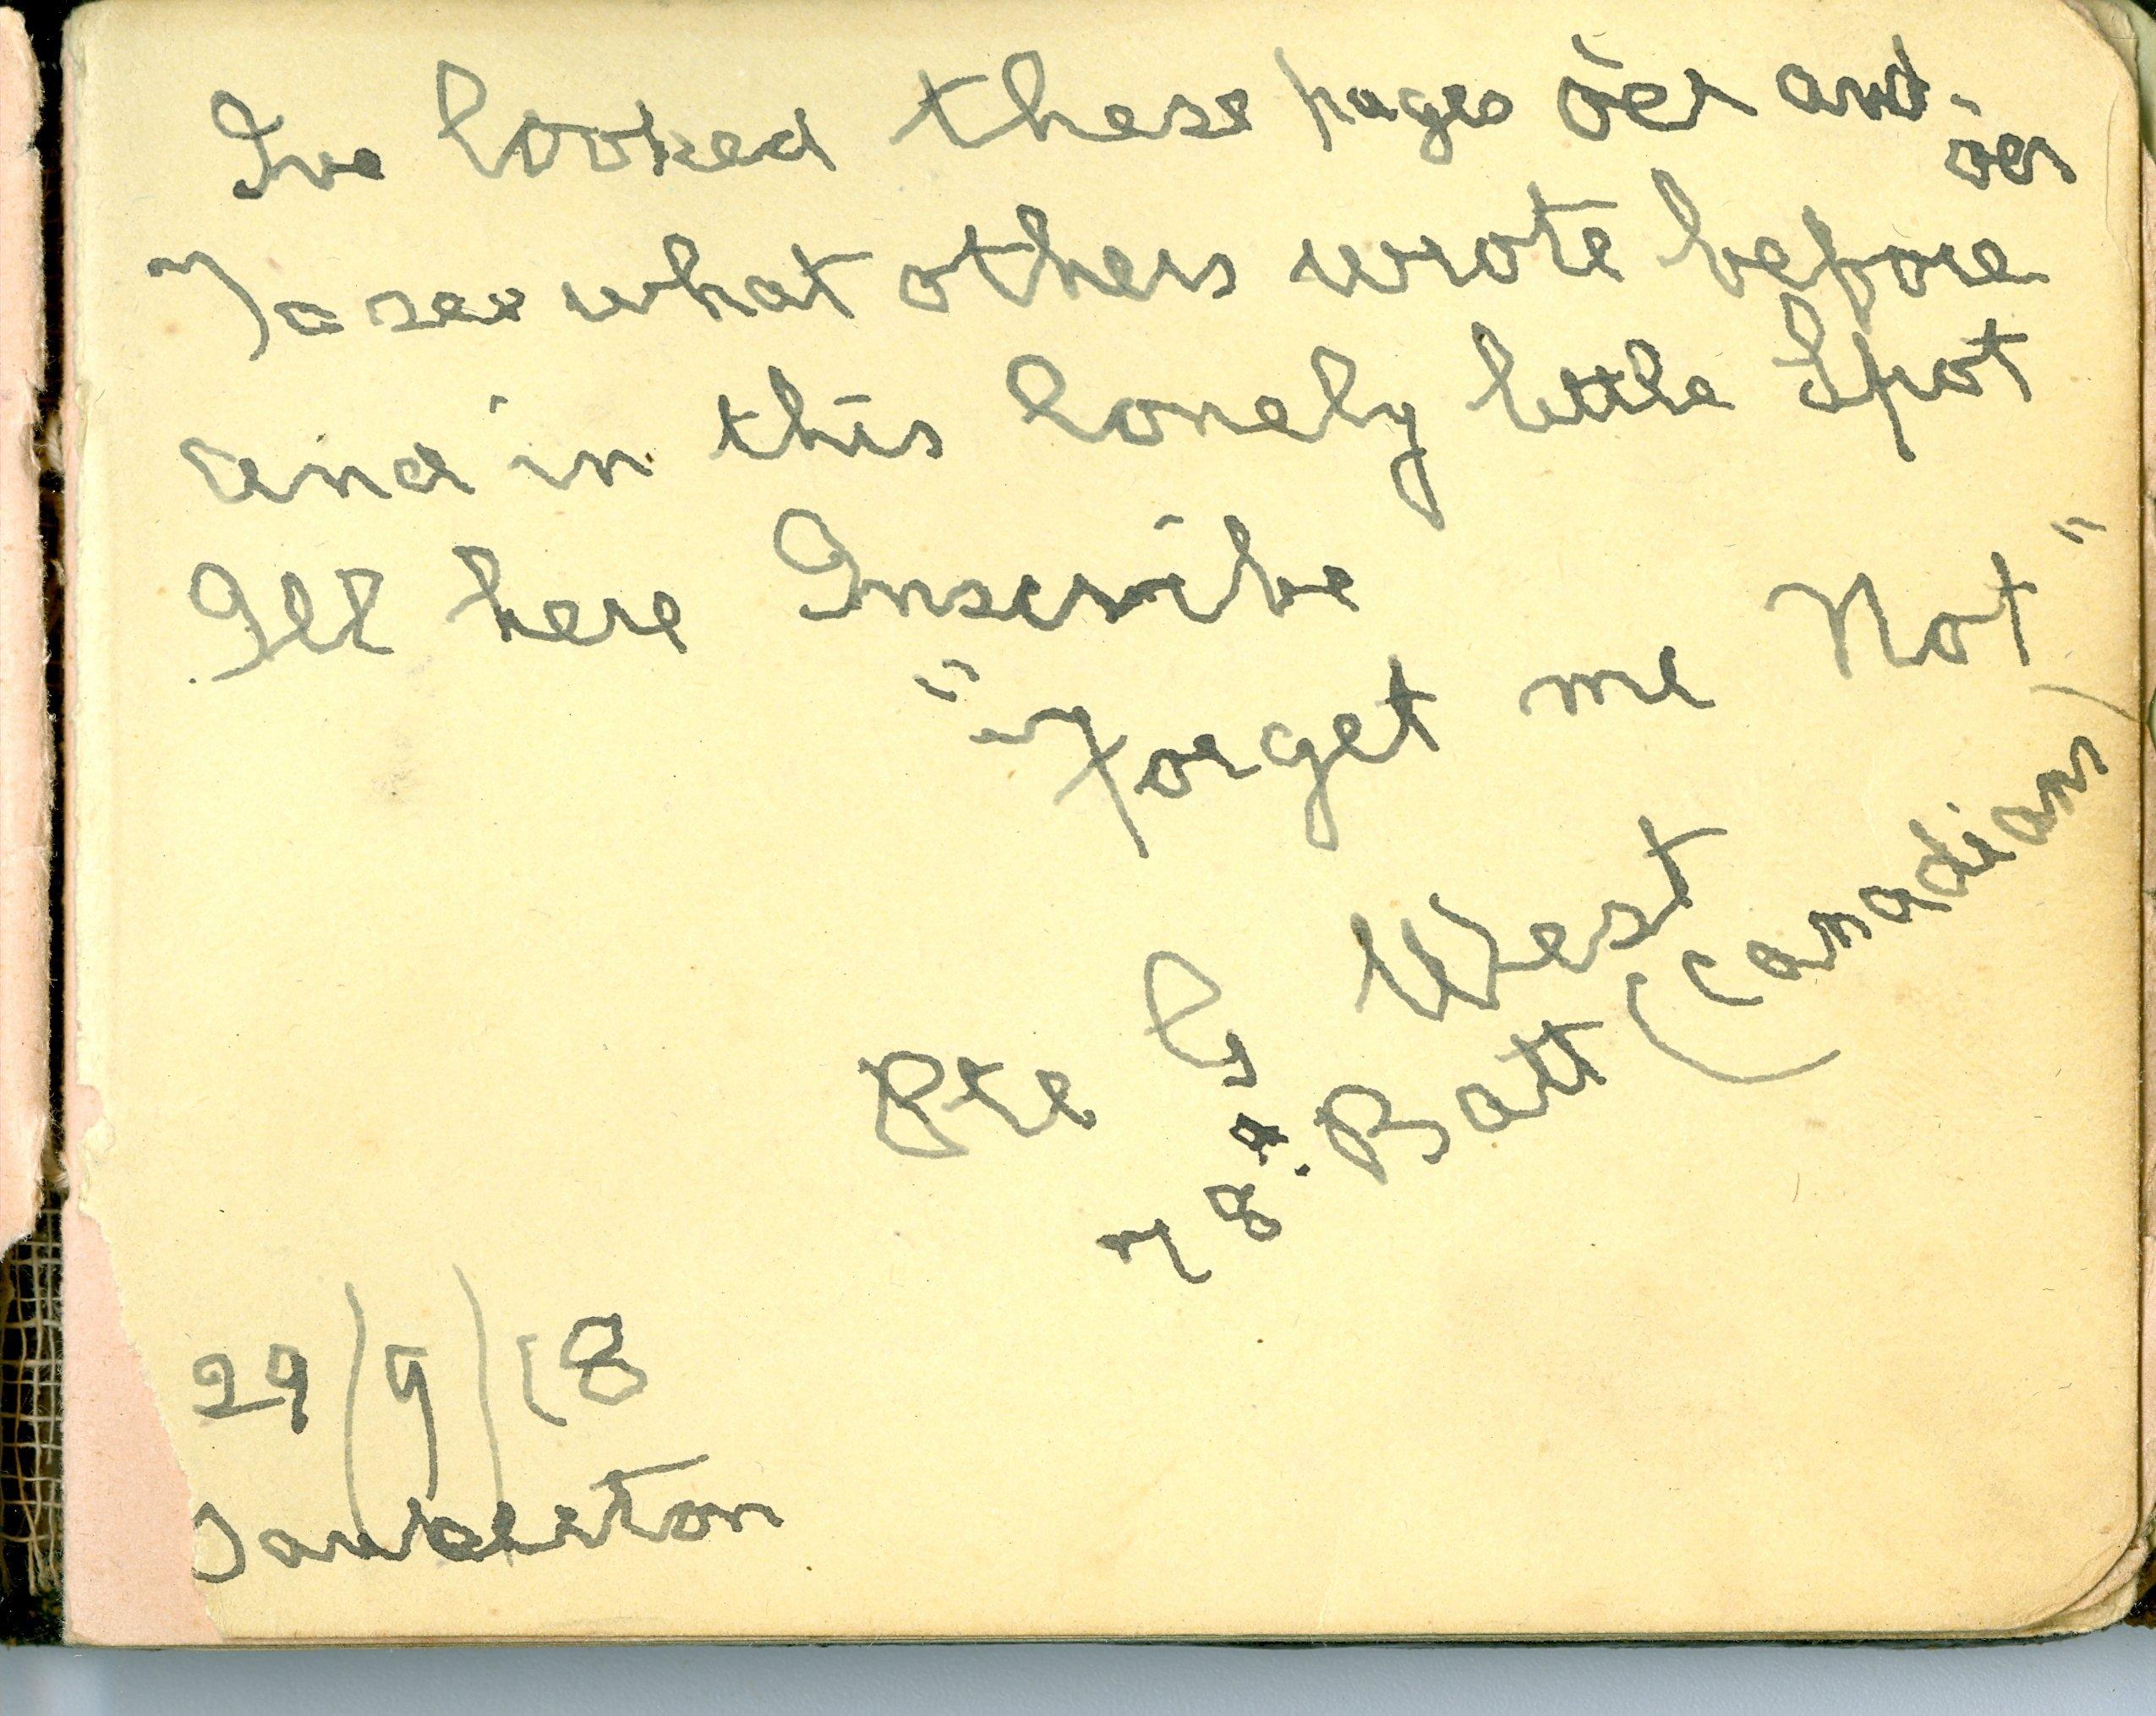 Ive looked these pages o'er and o'er
To see what others wrote before
and in this lonely little Spot
Ill here Inscribe
"Forget me Not"
Pte G West
78th. Batt (Canadians)
29/9/18